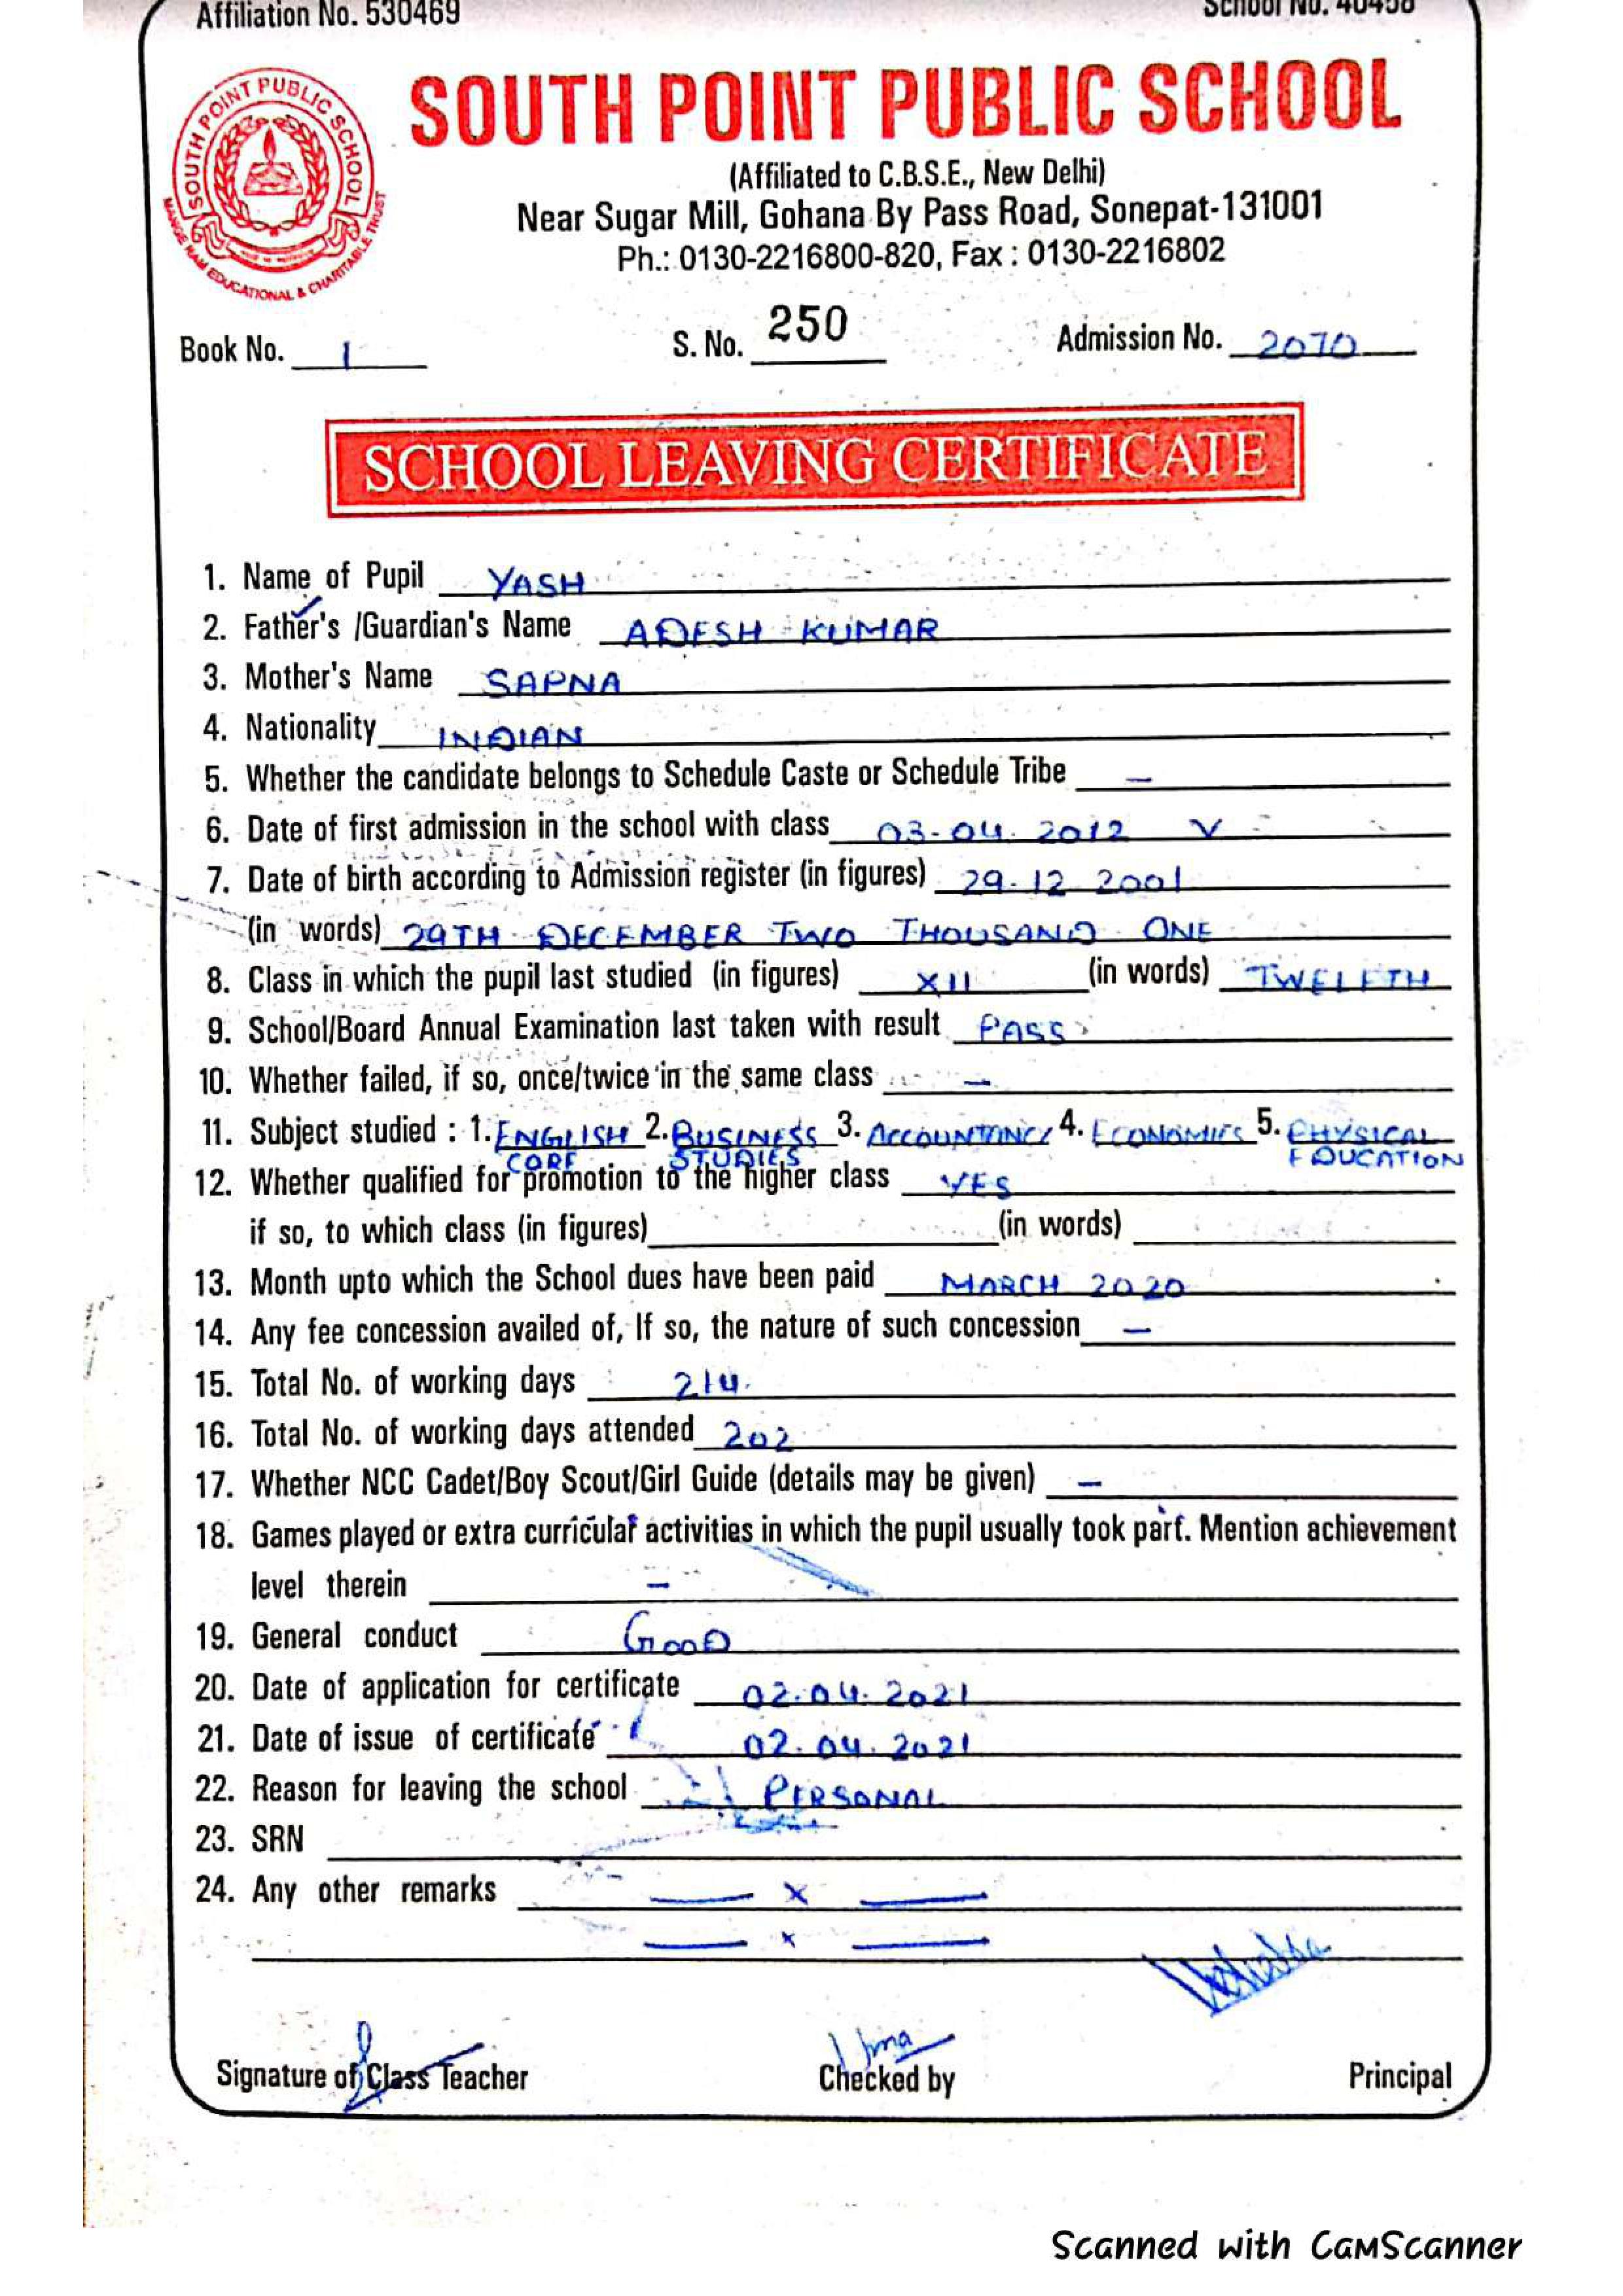 Affiliation No. 530469 School No. 40458
SOUTH POINT PUBLIC SCHOOL
SOUTH POINT PUBLIC SCHOOL
MANGE RAM EDUCATIONAL & CHARITABLE TRUST
(Affiliated to C.B.S.E., New Delhi)
Near Sugar Mill, Gohana By Pass Road, Sonepat-131001
Ph.: 0130-2216800-820, Fax : 0130-2216802
Book No. 1 S. No. 250 Admission No. 2070
SCHOOL LEAVING CERTIFICATE
1. Name of Pupil YASH
2. Father's /Guardian's Name ADESH KUMAR
3. Mother's Name SAPNA
4. Nationality INDIAN
5. Whether the candidate belongs to Schedule Caste or Schedule Tribe –
6. Date of first admission in the school with class 03-04-2012 V
7. Date of birth according to Admission register (in figures) 29-12-2001
(in words) 29TH DECEMBER TWO THOUSAND ONE
8. Class in which the pupil last studied (in figures) XII (in words) TWELFTH
9. School/Board Annual Examination last taken with result PASS
10. Whether failed, if so, once/twice in the same class –
11. Subject studied : 1. ENGLISH 2. BUSINESS 3. ACCOUNTANCY 4. ECONOMICS 5. PHYSICAL
CORE STUDIES EDUCATION
12. Whether qualified for promotion to the higher class YES
if so, to which class (in figures) (in words)
13. Month upto which the School dues have been paid MARCH 2020
14. Any fee concession availed of, If so, the nature of such concession –
15. Total No. of working days 214.
16. Total No. of working days attended 202
17. Whether NCC Cadet/Boy Scout/Girl Guide (details may be given) –
18. Games played or extra curricular activities in which the pupil usually took part. Mention achievement
level therein –
19. General conduct GOOD
20. Date of application for certificate 02.04.2021
21. Date of issue of certificate 02.04.2021
22. Reason for leaving the school PERSONAL
23. SRN
24. Any other remarks — x —
— x —
Uma
Signature of Class Teacher Checked by Principal
Scanned with CamScanner